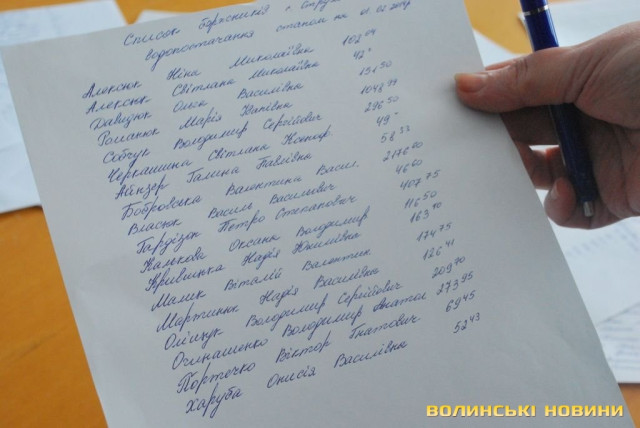 Список боржників с. Струм
водопостачання станом на 01.02.2014
Алексюк Ніна Миколаївна 102 04
Алексюк Світлана Миколаївна 42
Давидюк Ольга Василівна 151 50
Романюк Марія Іванівна 1048 99
Собчук Володимир Сергійович 296 50
Черкашина Світлана 49
Айнзер Галина Павлівна 58 33
Бобровська Валентина Васил. 2176 00
Власюк Василь Васильович 46 60
Гардізок Петро Степанович 407 75
Калекова Оксана Володимир 116 50
Кривицька Надія Юхимівна 163 10
Малик Віталій Валентин 174 75
Мартинюк Надія Василівна 126 41
Оліщук Володимир Сергійович 209 70
Осташенко Володимир Анатол 273 95
Портечко Віктор Гнатович 69 45
Харуба Онисія Василівна 52 43
ВОЛИНСЬКІ НОВИНИ